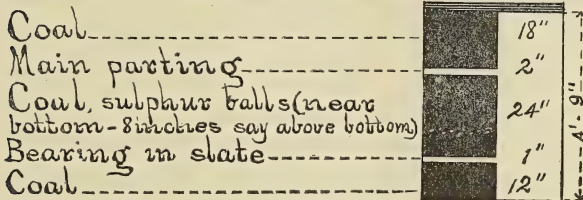 Coal 18"
Main parting 2"
Coal, sulphur balls (near 24"
bottom - 8 inches say above bottom)
Bearing in slate 1"
Coal 12"
4'-9"